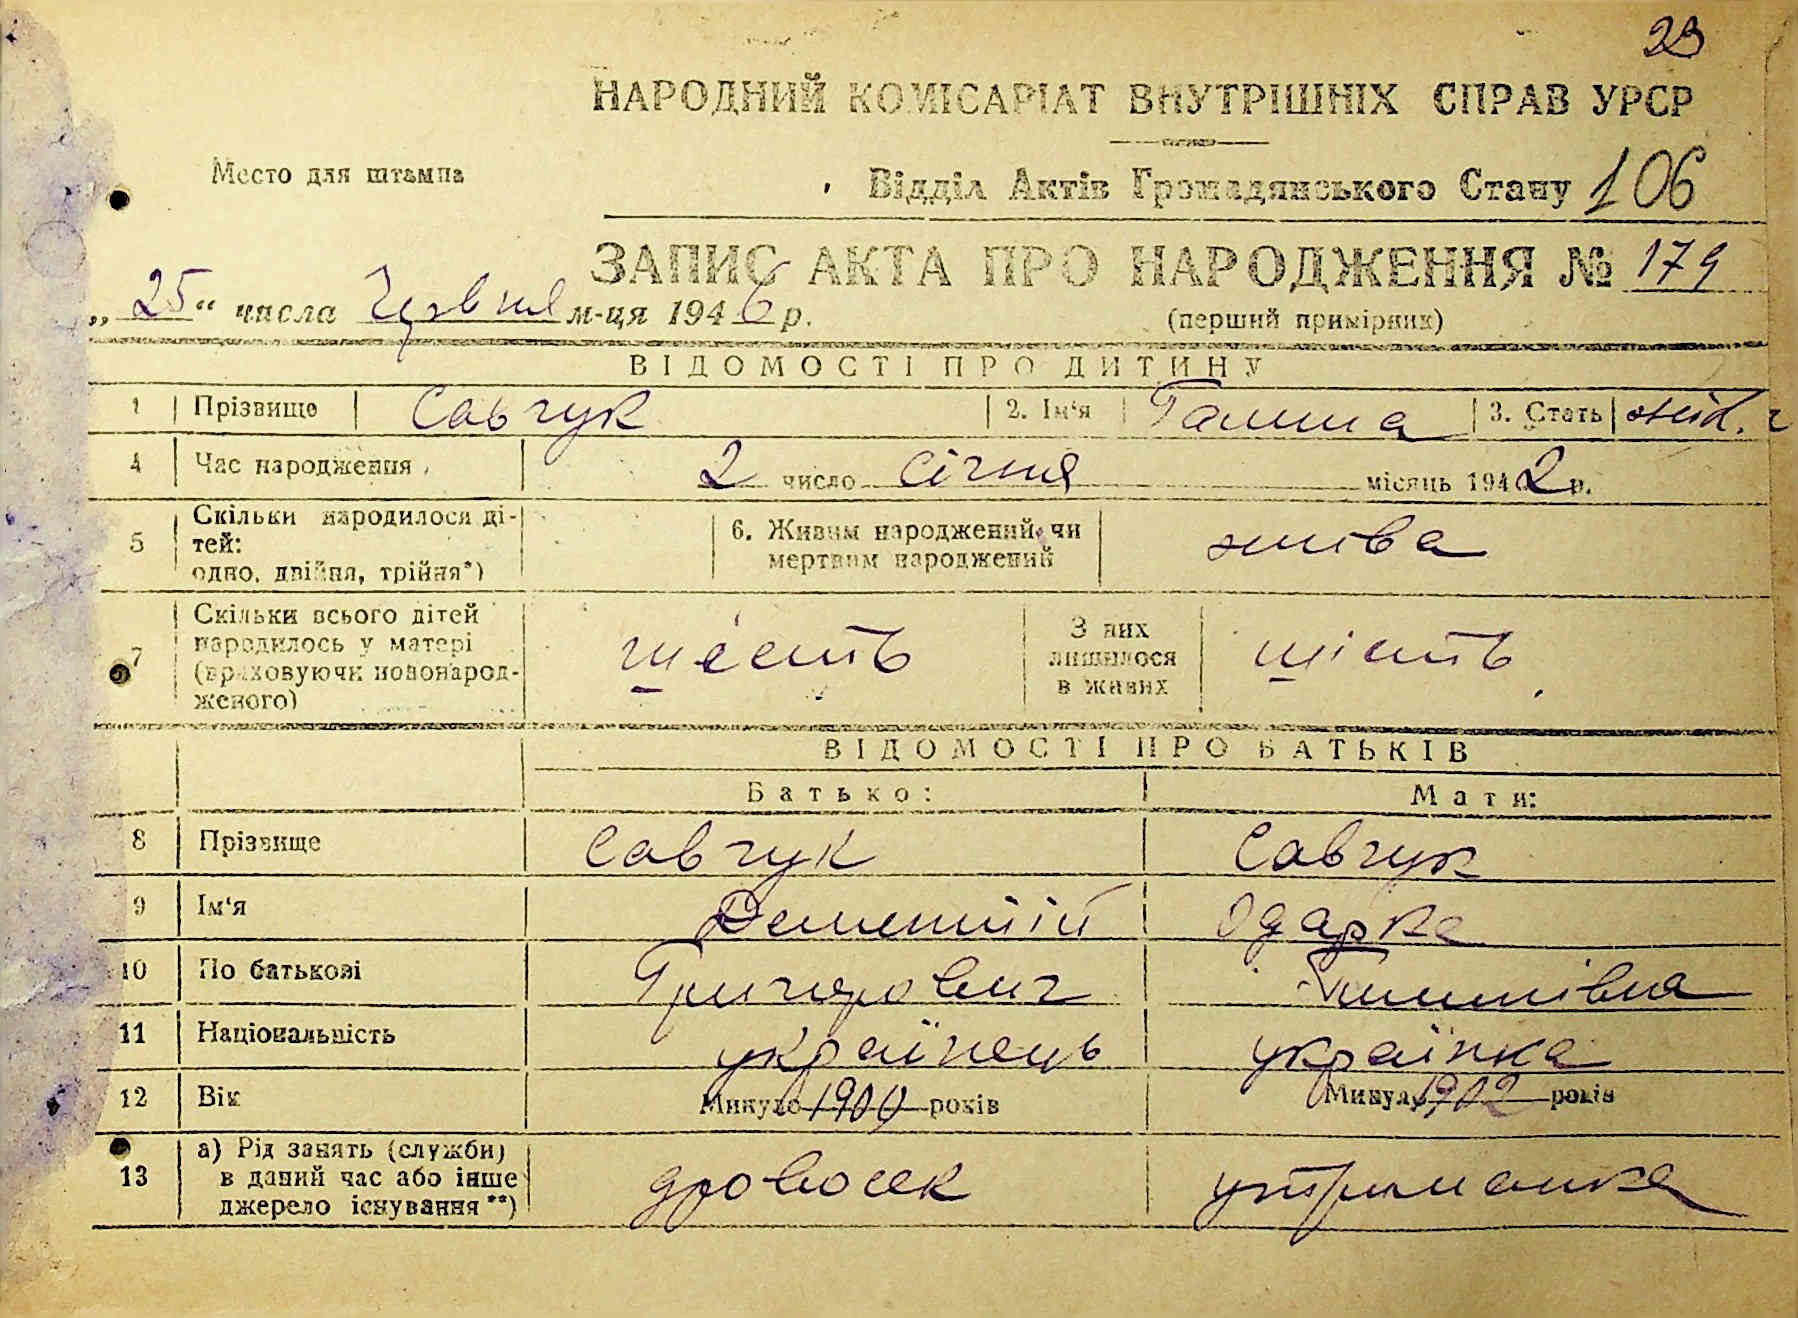 23
НАРОДНИЙ КОМІСАРІАТ ВНУТРІШНІХ СПРАВ УРСР
Место для штампа
Відділ Актів Громадянського Стану 106
ЗАПИС АКТА ПРО НАРОДЖЕННЯ № 179
„25“ числа Червня м-ця 1946 р.
(перший примірник)
ВІДОМОСТІ ПРО ДИТИНУ
1 Прізвище Савчук 2. Ім‘я Галина 3. Стать
4 Час народження 2 число січня місяць 1942 р.
5 Скільки народилося ді-
тей:
одно, двійня, трійня*)
6. Живим народжений, чи
мертвим народжений
жива
7 Скільки всього дітей
народилось у матері
(враховуючи новонарод-
женого)
шесть
З них
лишилося
в живих
шість
ВІДОМОСТІ ПРО БАТЬКІВ
Батько: Мати:
8 Прізвище Савчук Савчук
9 Ім‘я Дементій Одарка
10 По батькові Григорович
11 Національність українець українка
12 Вік Минуло 1900 років Минуло 1902 років
13 а) Рід занять (служби)
в даний час або інше
джерело існування**)
дровосек утриманка